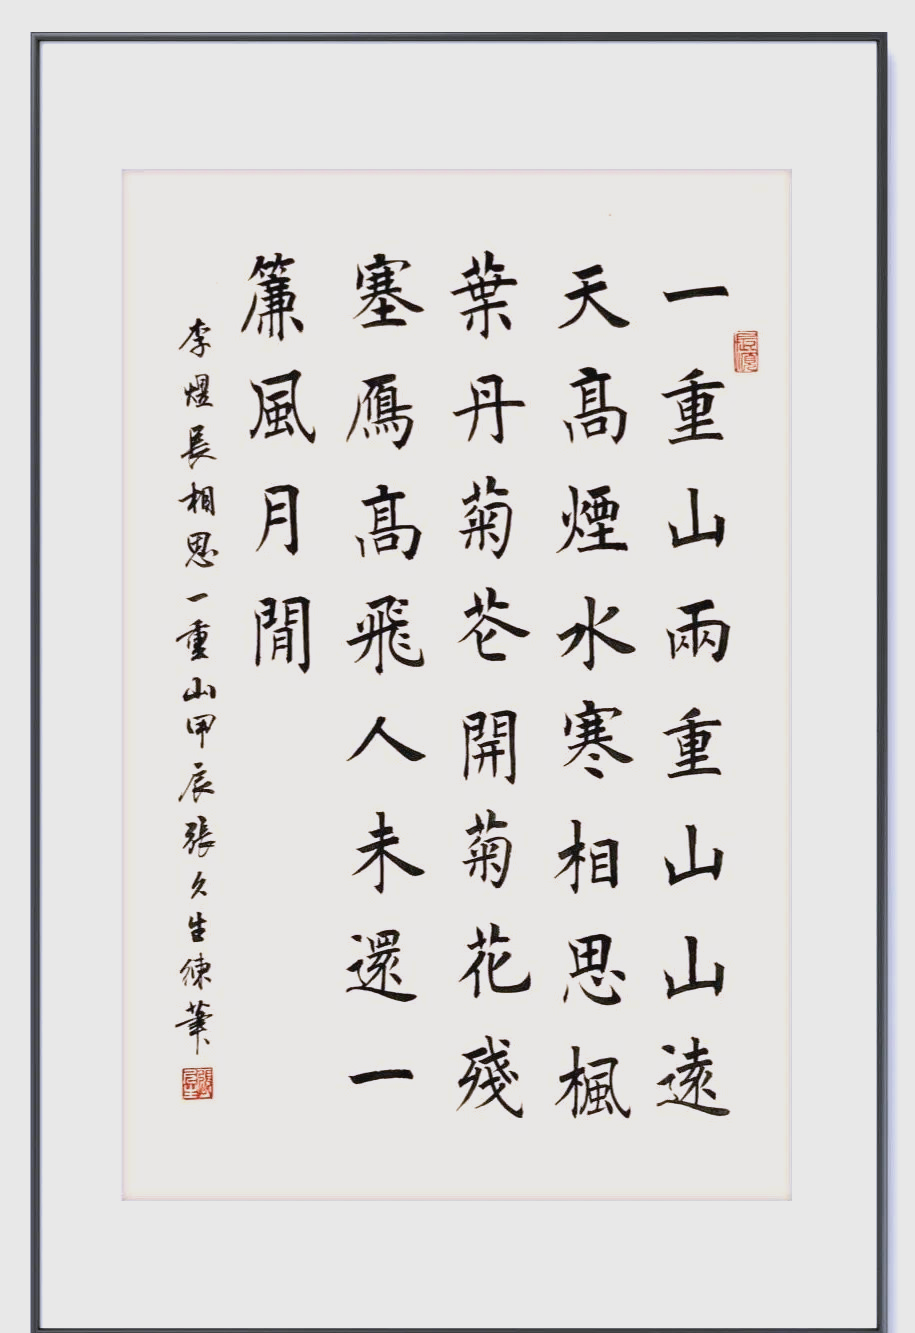 一重山兩重山山遠
天髙煙水寒相思楓
葉丹菊芲開菊花殘
塞鴈髙飛人未還一
簾風月閒
李煜長相思一重山甲辰張久生練筆